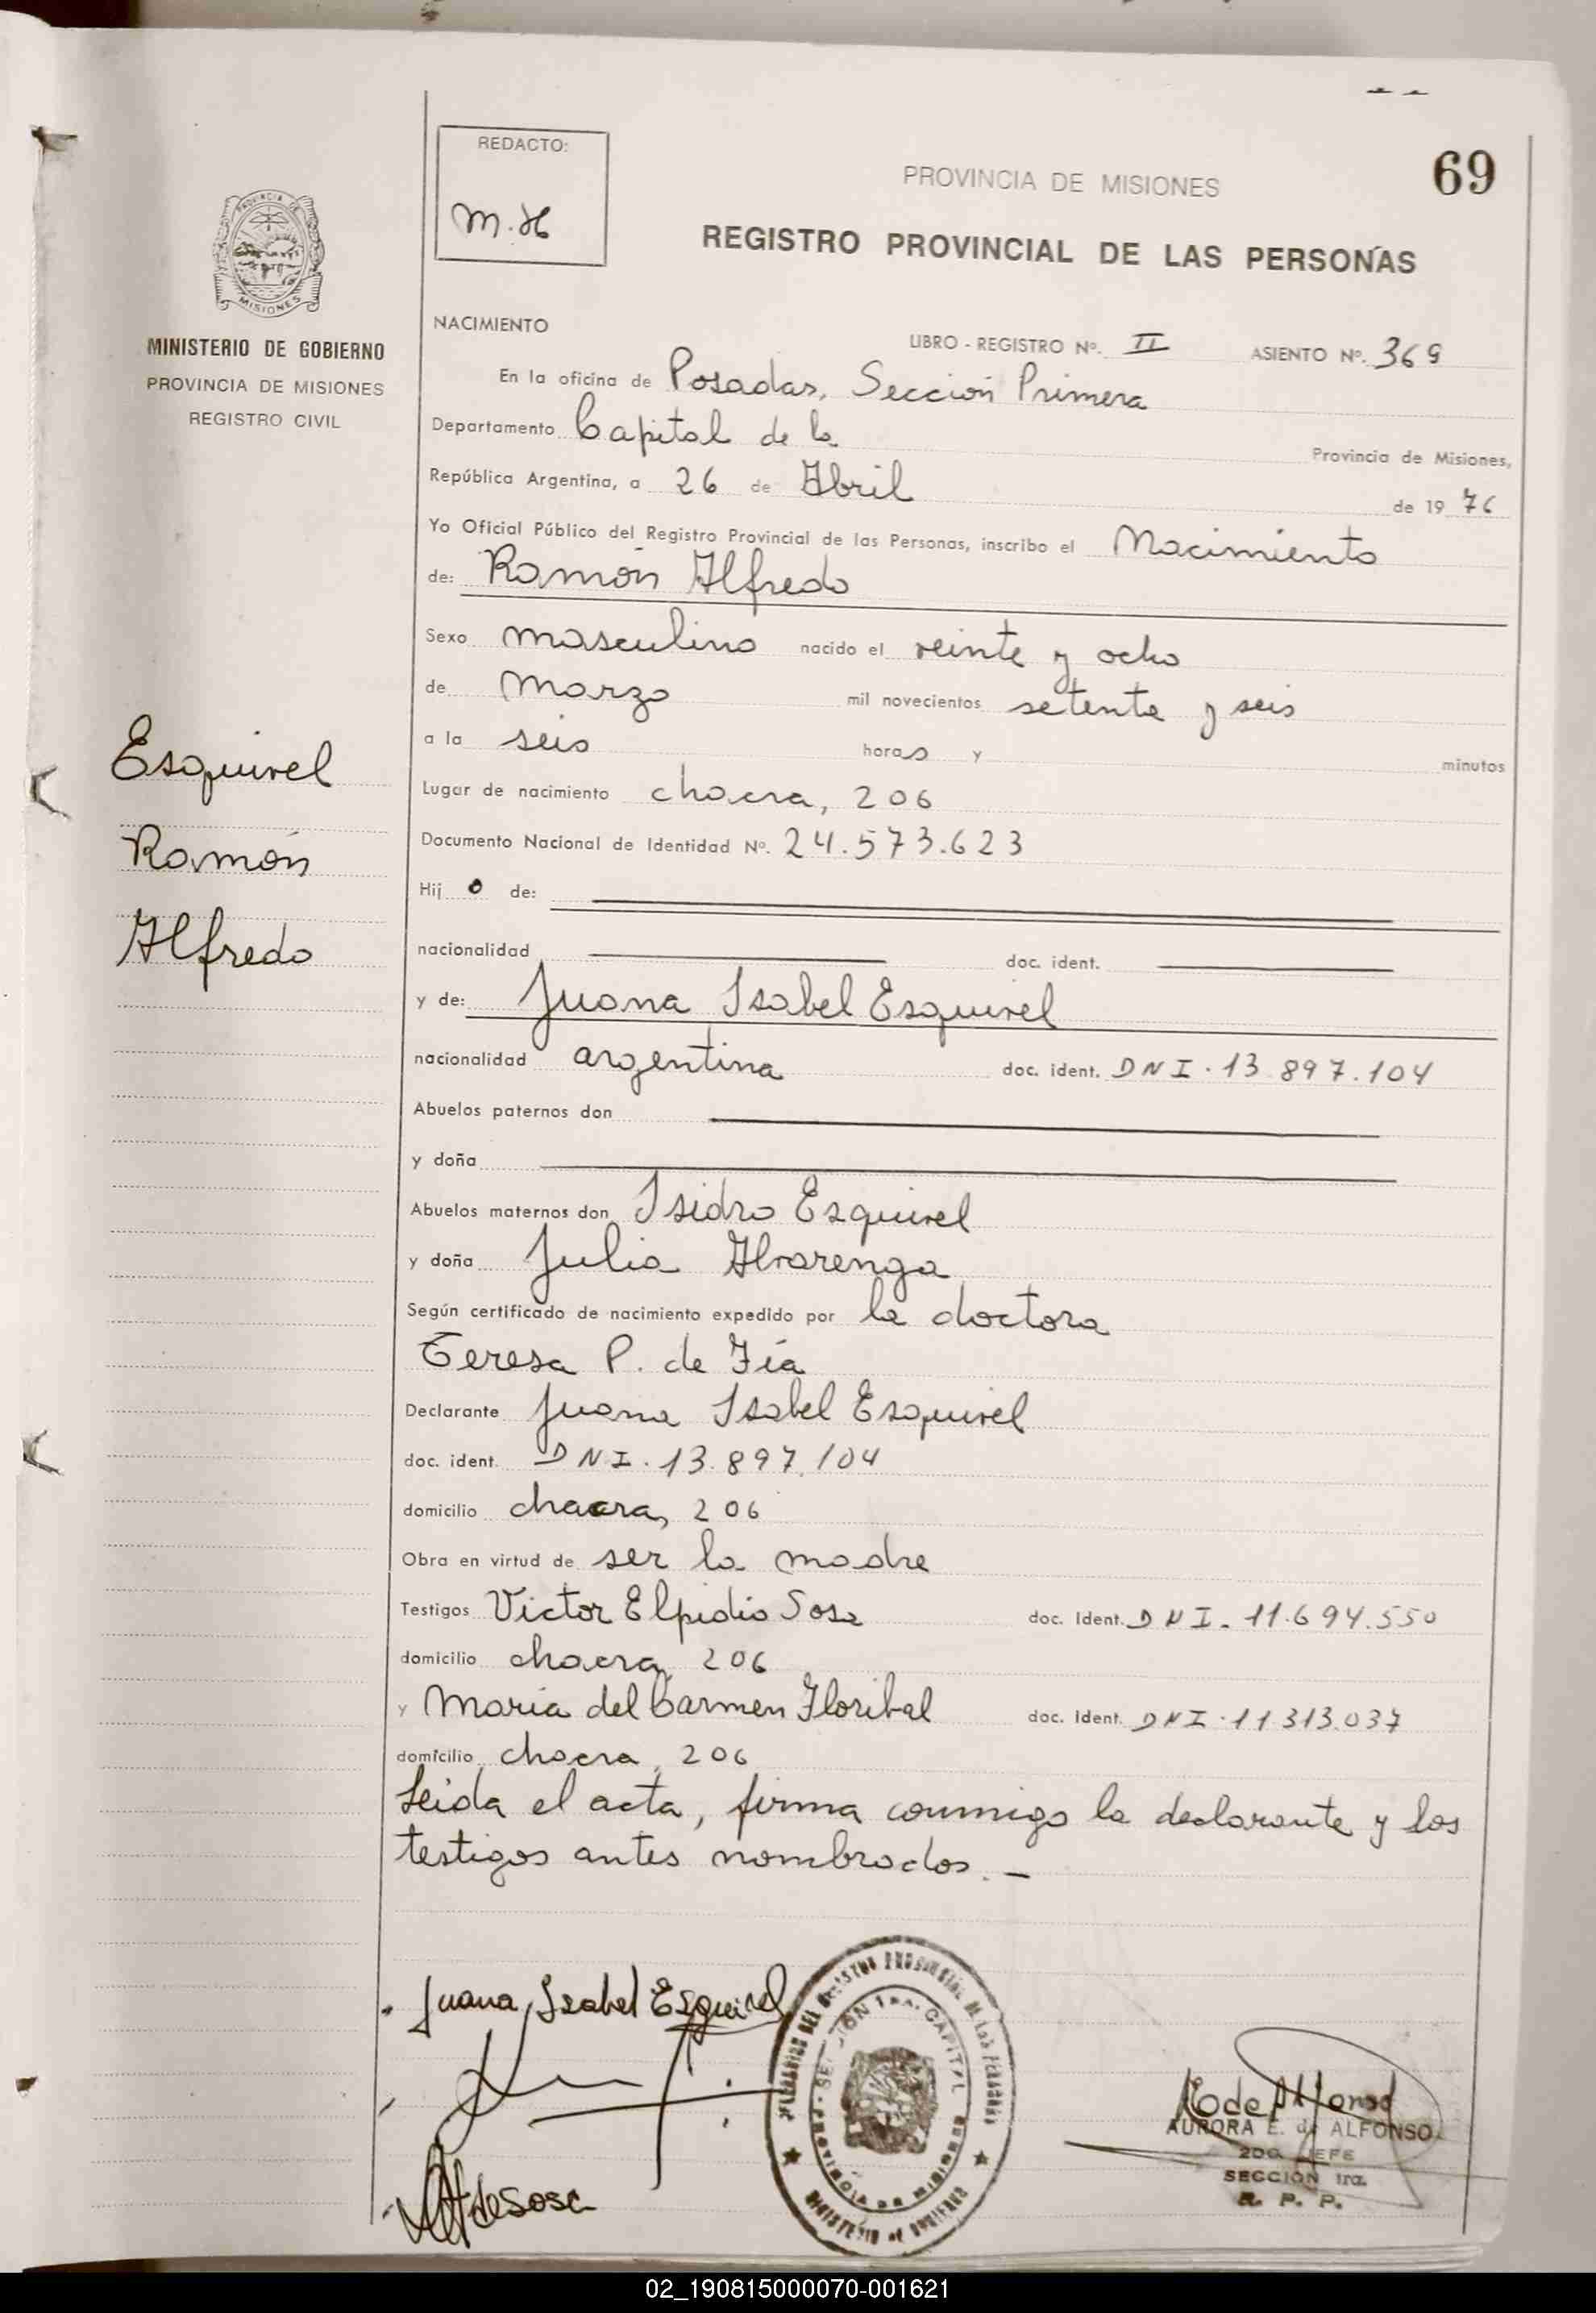 REDACTO:
M.H
PROVINCIA DE MISIONES
69
REGISTRO PROVINCIAL DE LAS PERSONAS
PROVINCIA DE
MISIONES
MINISTERIO DE GOBIERNO
PROVINCIA DE MISIONES
REGISTRO CIVIL
NACIMIENTO
LIBRO - REGISTRO Nº. II ASIENTO Nº. 369
En la oficina de Posadas, Sección Primera
Departamento Capital de la Provincia de Misiones,
República Argentina, a 26 de Abril de 1976
Yo Oficial Público del Registro Provincial de las Personas, inscribo el Nacimiento
de: Ramón Alfredo
Sexo masculino nacido el veinte y ocho
de Marzo mil novecientos setenta y seis
a la seis horas y minutos
Lugar de nacimiento chacra, 206
Documento Nacional de Identidad Nº. 24.573.623
Hijo de:
nacionalidad doc. ident.
y de: Juana Isabel Esquivel
nacionalidad argentina doc. ident. DNI. 13.897.104
Abuelos paternos don
y doña
Abuelos maternos don Isidro Esquivel
y doña Julia Alvarenga
Según certificado de nacimiento expedido por la doctora
Teresa P. de
Declarante Juana Isabel Esquivel
doc. ident. DNI. 13.897.104
domicilio chacra, 206
Obra en virtud de ser la madre
Testigos Victor Elpidio Sosa doc. Ident. DNI. 11.694.550
domicilio chacra, 206
y Maria del Carmen doc. Ident. DNI. 11.313.037
domicilio chacra, 206
Leida el acta, firma conmigo la declarante y los
testigos antes nombrados.-
Esquivel
Ramón
Alfredo
Juana Isabel Esquivel
de Sosa
SECCION 1ra. CAPITAL
PROVINCIA DE MISIONES
MINISTERIO DE GOBIERNO
E de Alfonso
AURORA E. de ALFONSO
2DO. JEFE
SECCIÓN 1ra.
R. P. P.
02_190815000070-001621